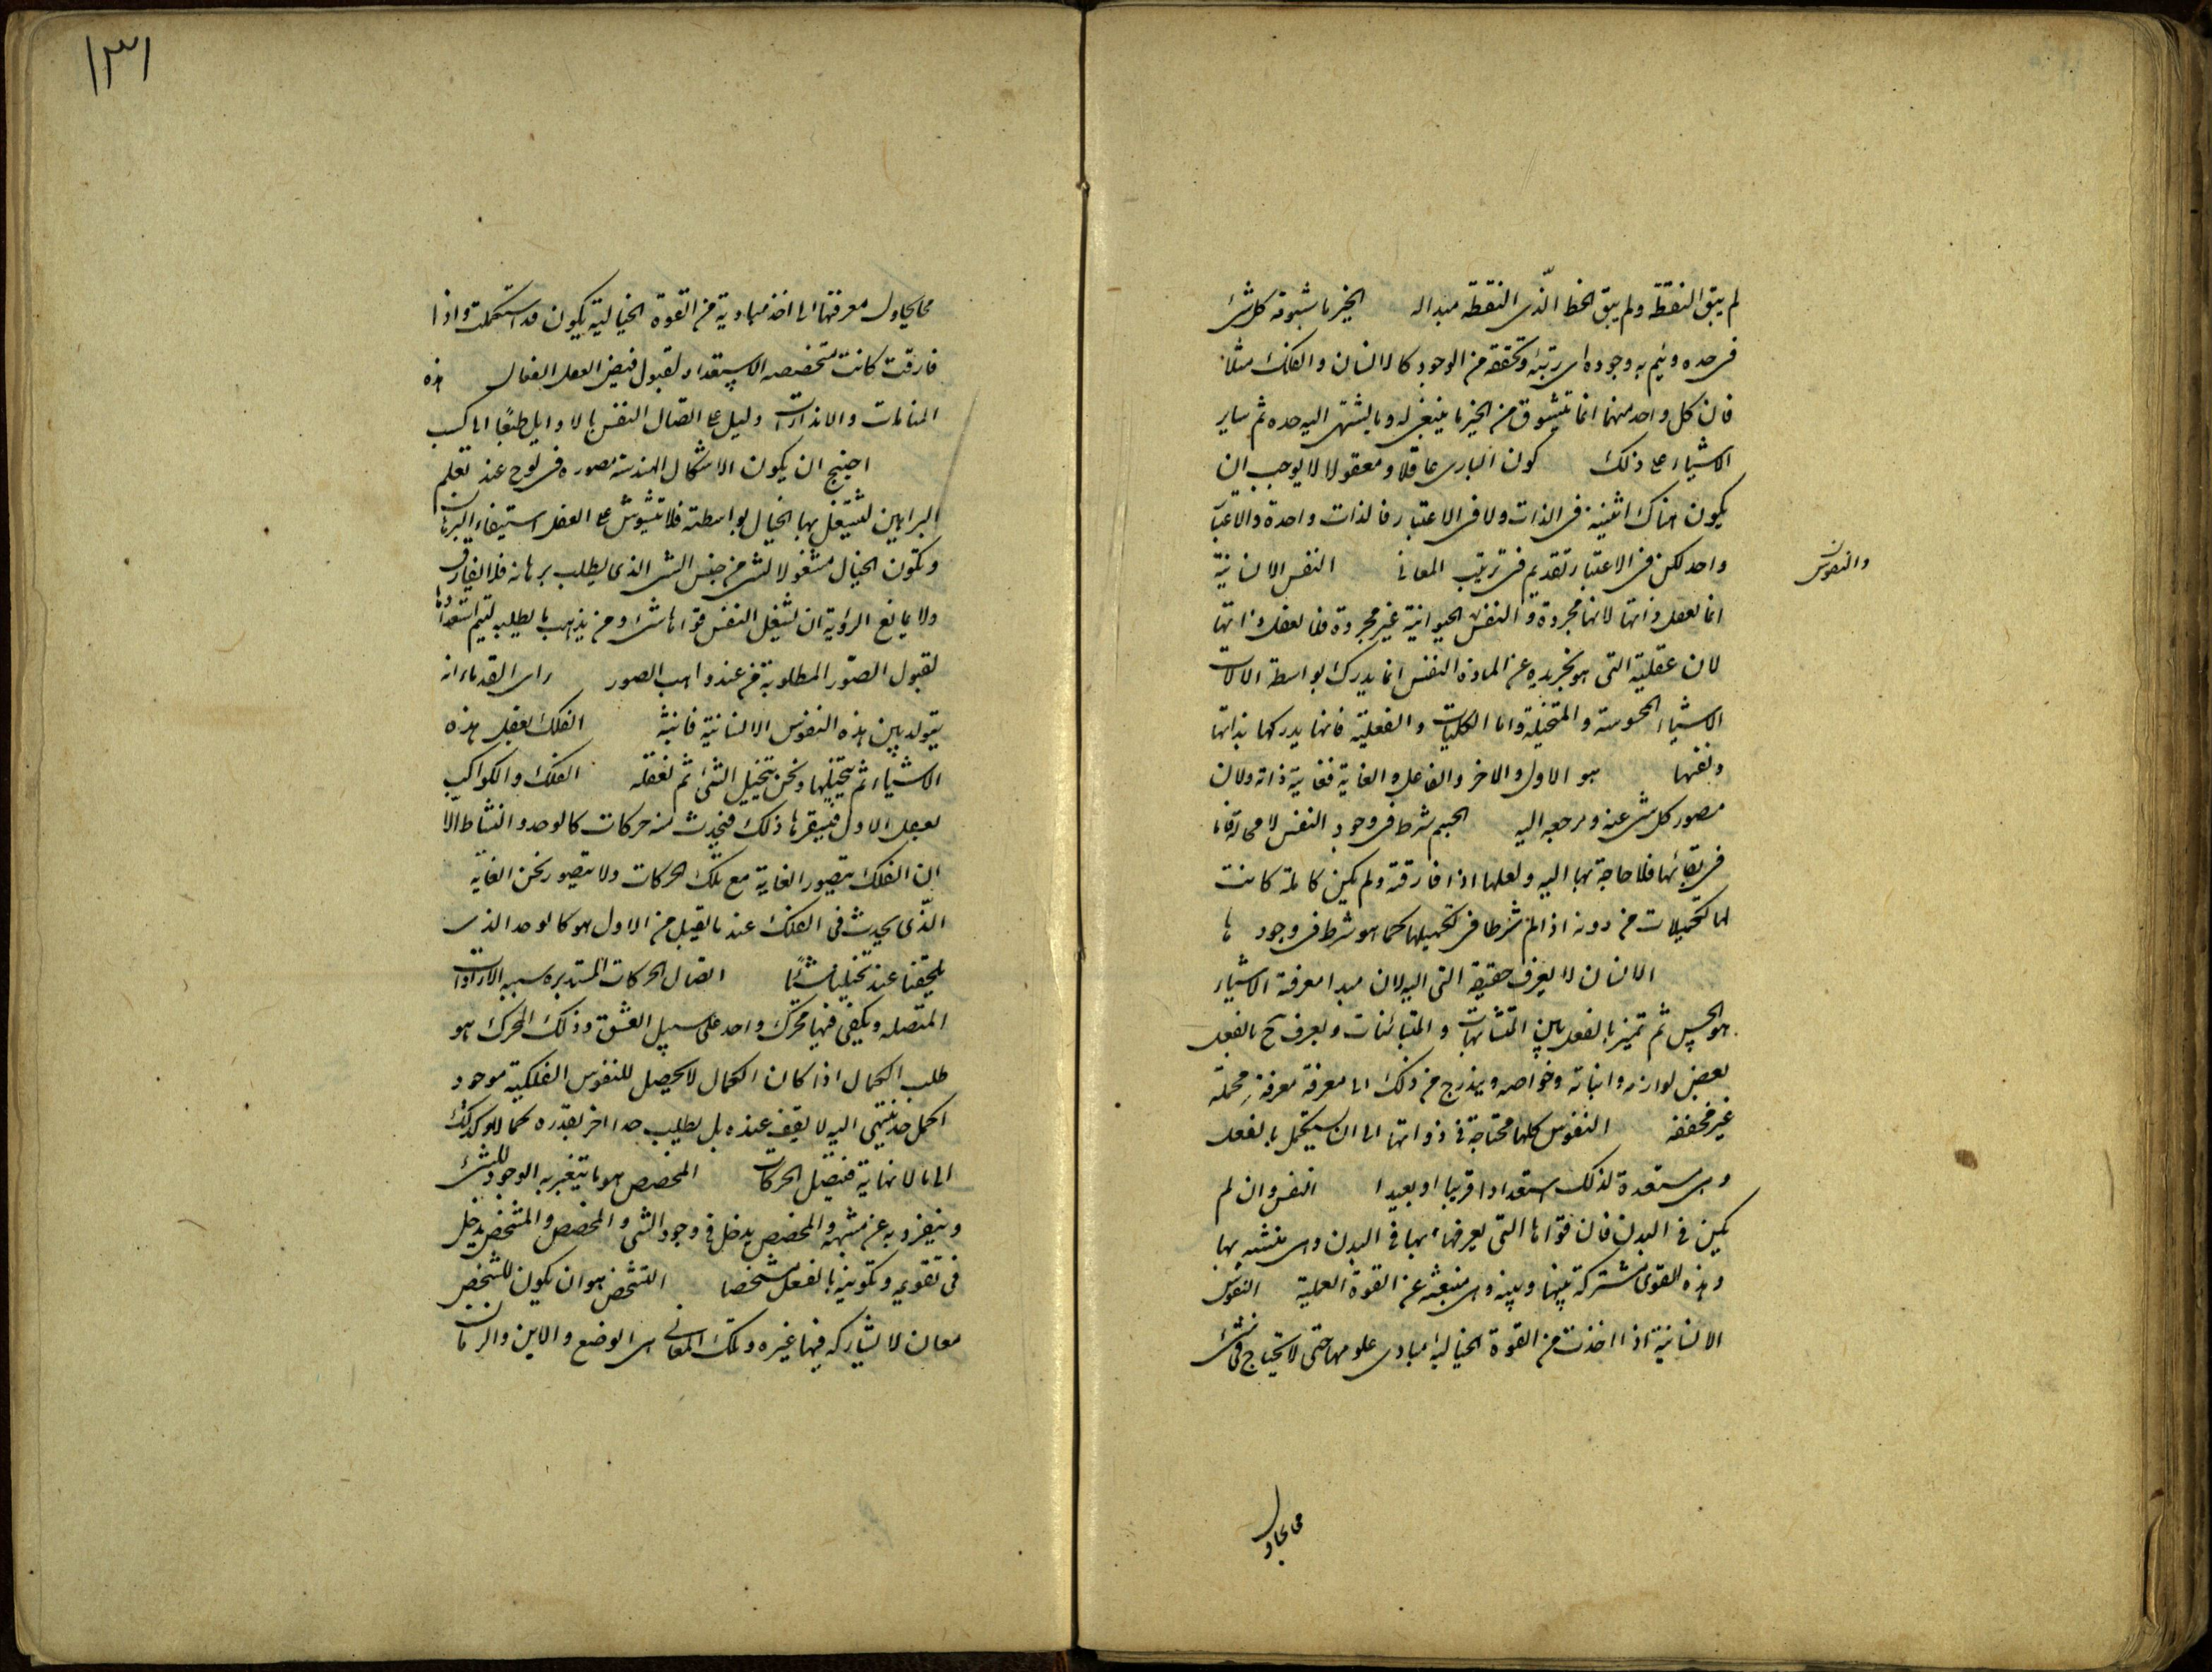 لم يبق النقطة ولم يبق الخط الذى النقطة مبداله الخير ما يتشوقه كل شئ
فى حده ويتم به وجوده اى رتبته وتحققه من الوجود كالانسان والفلك مثلا
فان كل واحد منهما انما يتشوق من الخير ما ينبغى له وما ينتهى اليه حده ثم ساير
الاشياء على ذلك كون البارى عاقلا ومعقولا لا يوجب ان
يكون هناك اثنينية فى الذات ولا فى الاعتبار فالذات واحدة والاعتبار
واحد لكن فى الاعتبار تقديم فى ترتيب المعانى النفس الانسانية
والنفوس
انما تعقل ذاتها لانها مجردة والنفس الحيوانية غير مجردة فلا تعقل ذاتها
لان عقلية الشئ هو تجريده عن المادة النفس انما يدرك بواسطة الالات
الاشياء المحسوسة والمتخيلة واما الكليات والعقلية فانها يدركها بذاتها
ونفسها هو الاول والاخر والفاعل والغاية فغاية ذاته ولان
مصدر كل شئ عنه ومرجعه اليه الجسم شرط فى وجود النفس لا محالة فاما
فى بقائها فلا حاجة بها اليه ولعلها اذا فارقته ولم يكن كاملة كانت
لها تكميلات من دونه اذ لم شرطا فى تكميلها كما هو شرط فى وجود ها
الانسان لا يعرف حقيقة الشئ البتة لان مبدا معرفة الاشياء
هو الحس ثم تميز بالعقل بين المتشابهات والمتباينات ويعرف ح بالعقل
بعض لوازمه واثباته وخواصه ويندرج من ذلك الى معرفة معرفة مجملة
غير محققة النفوس كلها محتاجة فى ذواتها الى ان يستكمل بالعقل
وهى مستعدة لذلك استعدادا قريبا او بعيدا النفس وان لم
يكن فى البدن فان قواها التى يعرفها بها فى البدن وهى متشبه بها
وهذه القوى مشتركة بينها وبينه وهى منبعثة عن القوة العملية النفوس
الانسانية اذا اخذت من القوة الخيالية مبادى علومها حتى لا يحتاج فى شئ
مما يحاول
١٣١
مما يحاول معرفتها الى اخذ مباديه من القوة الخيالية يكون قد استكملت واذا
فارقت كانت متخصصه الاستعداد لقبول فيض العقل الفعال هذه
المنامات والانذارات دليل على اتصال النفس بالاوايل طبعا الى كسب
احتيج ان يكون الاشكال الهندسة مصوره فى لوح عند تعلم
البراهين لتشتغل بها الخيال بواسطته فلا تتشوش على العقل استيفاء البرهان
وتكون الخيال مشغولا بشئ من جنس الشئ الذى يطلب برهانه فلا يفارق
ولا يمانع الروية ان تشغل النفس قواها بشئ ومن يذهب بالطلب ليتم استعدادها
لقبول الصور المطلوبة من عند واهب الصور راى القدماء انه
يتولد بين هذه النفوس الانسانية الفلك يعقل هذه
الاشياء ثم يتخيلها ونحن نتخيل الشئ ثم نعقله الفلك والكواكب
يعقل الاول فيستفزها ذلك فيحدث منه حركات كالوجد والنشاط الا
ان الفلك يتصور الغاية مع تلك الحركات ولا يتصور نحن الغاية
الذى يحدث فى الفلك عند ما يقبل من الاول هو كالوجد الذى
يلحقنا عند تخيلنا شيئا اتصال الحركات المستديره سببه الارادات
المتصله ويكفى فيها محرك واحد على سبيل العشق وذلك المحرك هو
طلب الكمال اذا كان الكمال لا يحصل للنفوس الفلكية موجود
اكمل حد ينتهى اليه لا يقف عنده بل يطلب حدا اخر بقدره كما لا وكذلك
الى ما لا نهاية فيتصل الحركات المخصص هو ما يتغير به الوجود للشئ
وينفرد به عن شبهه والمخصص يدخل فى وجود الشئ والمخصص والمشخص يدخل
فى تقويمه وتكوينه بالفعل شخصا التشخص هو ان يكون للشخص
معان لا يشاركه فيها غيره وتلك المعانى هى الوضع والاين والزمان